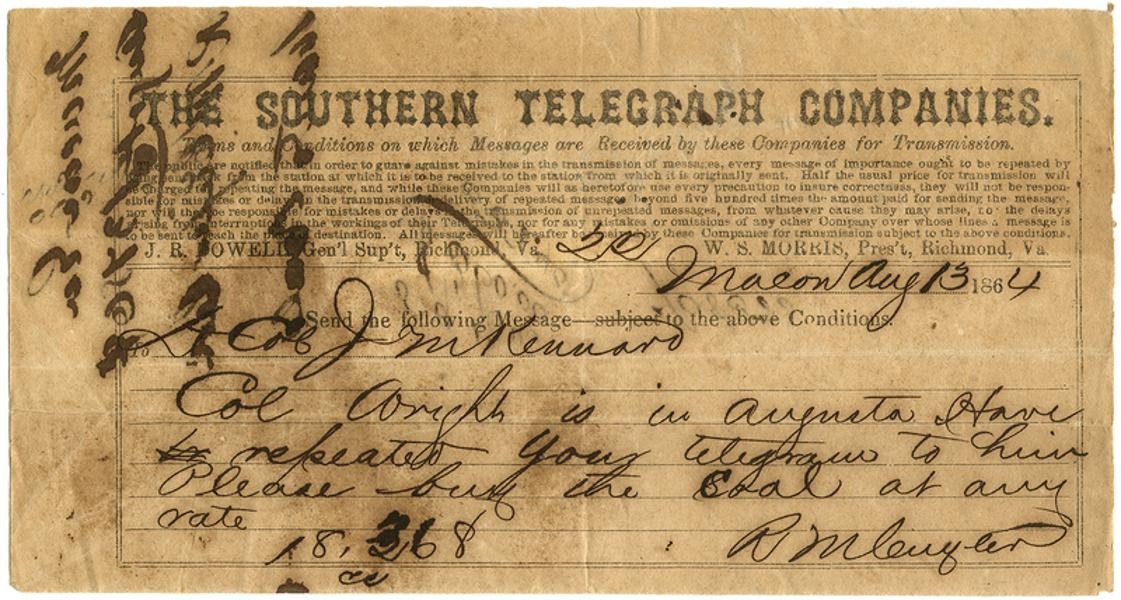 THE SOUTHERN TELEGRAPH COMPANIES.
Terms and Conditions on which Messages are Received by these Companies for Transmission.
The public are notified that in order to guard against mistakes in the transmission of messages, every message of importance ought to be repeated by
being sent back from the station at which it is to be received to the station from which it is originally sent. Half the usual price for transmission will
be charged for repeating the message, and while these Companies will as heretofore use every precaution to insure correctness, they will not be respon-
sible for mistakes or delays in the transmission or delivery of repeated messages beyond five hundred times the amount paid for sending the message,
nor will they be responsible for mistakes or delays in the transmission of unrepeated messages, from whatever cause they may arise, nor the delays
arising from interruptions in the workings of their Telegraphs, nor for any mistakes or omissions of any other Company over whose lines a message is
to be sent to reach the place of destination. All messages will hereafter be received by these Companies for transmission subject to the above conditions.
J. R. DOWELL, Gen'l Sup't, Richmond, Va. W. S. MORRIS, Pres't, Richmond, Va.
Macon Aug 13 1864
Send the following Message subject to the above Conditions.
To Lt Col J M Kennard
Col Wright is in Augusta Have
repeated your telegram to him
Please buy the Coal at any
rate
18. 368 R M Cuyler